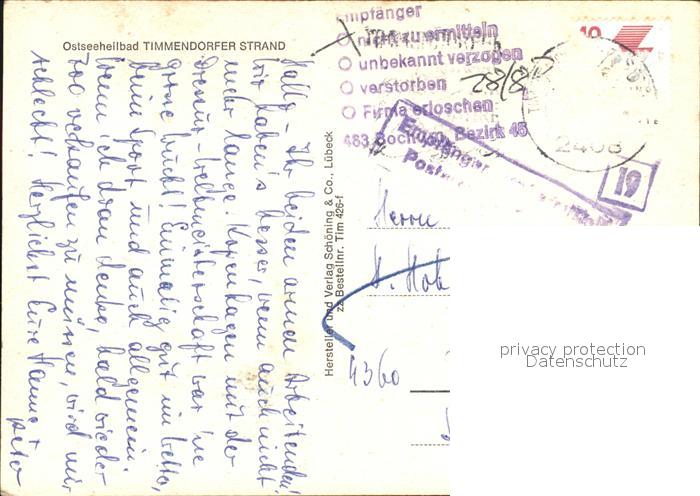 Ostseeheilbad TIMMENDORFER STRAND
Hallo – Ihr beiden armen Arbeitenden!
Wir haben's besser, wenn auch nicht
mehr lange. Kopenhagen mit der
Dressur-Weltmeisterschaft war 'ne
grosse Wucht! Einmalig gut im Wetter,
beim Sport und auch allgemein.
Wenn ich dran denke, bald wieder
verkaufen zu müssen, wird mir
schlecht! Herzlichst Eure Hanne +
Peter
Hersteller und Verlag Schöning & Co., Lübeck
zz Bestellnr. Tim 426-f
Empfänger
nicht zu ermitteln
unbekannt verzogen
verstorben
Firma erloschen
463 Bochum, Bezirk 46
28/8
10
2408
Empfänger
19
Herrn
H.
4360
privacy protection
Datenschutz